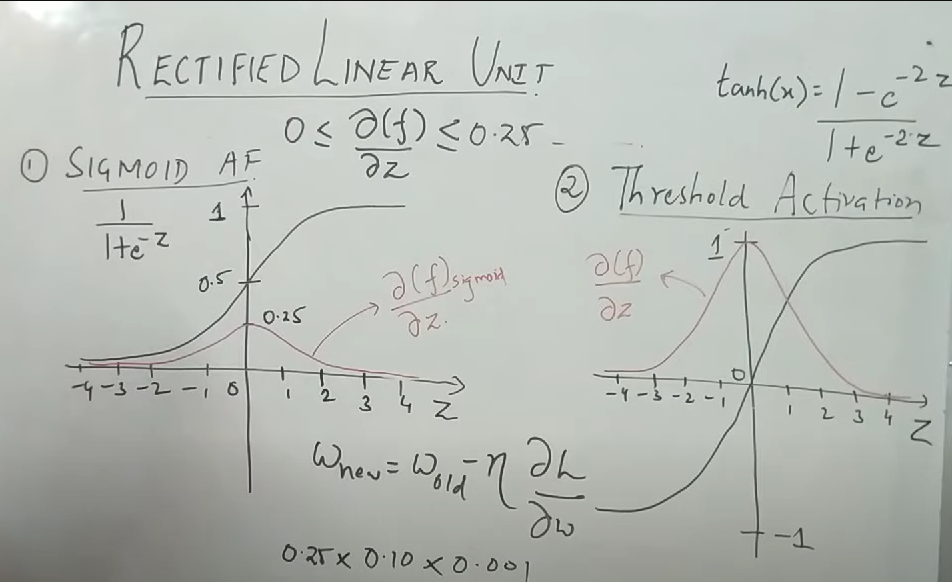 RECTIFIED LINEAR UNIT
tanh(x) = 1 - e^{-2z} / 1 + e^{-2z}
0 ≤ ∂(f)/∂z ≤ 0.25
① SIGMOID AF
1 / 1+e^{-z}
1
0.5
0.25
∂(f)sigmoid / ∂z.
-4 -3 -2 -1 0 1 2 3 4 Z
② Threshold Activation
1
∂(f)/∂z
0
-4 -3 -2 -1 1 2 3 4 Z
-1
ω_new = ω_old - η ∂L/∂ω
0.25 × 0.10 × 0.001